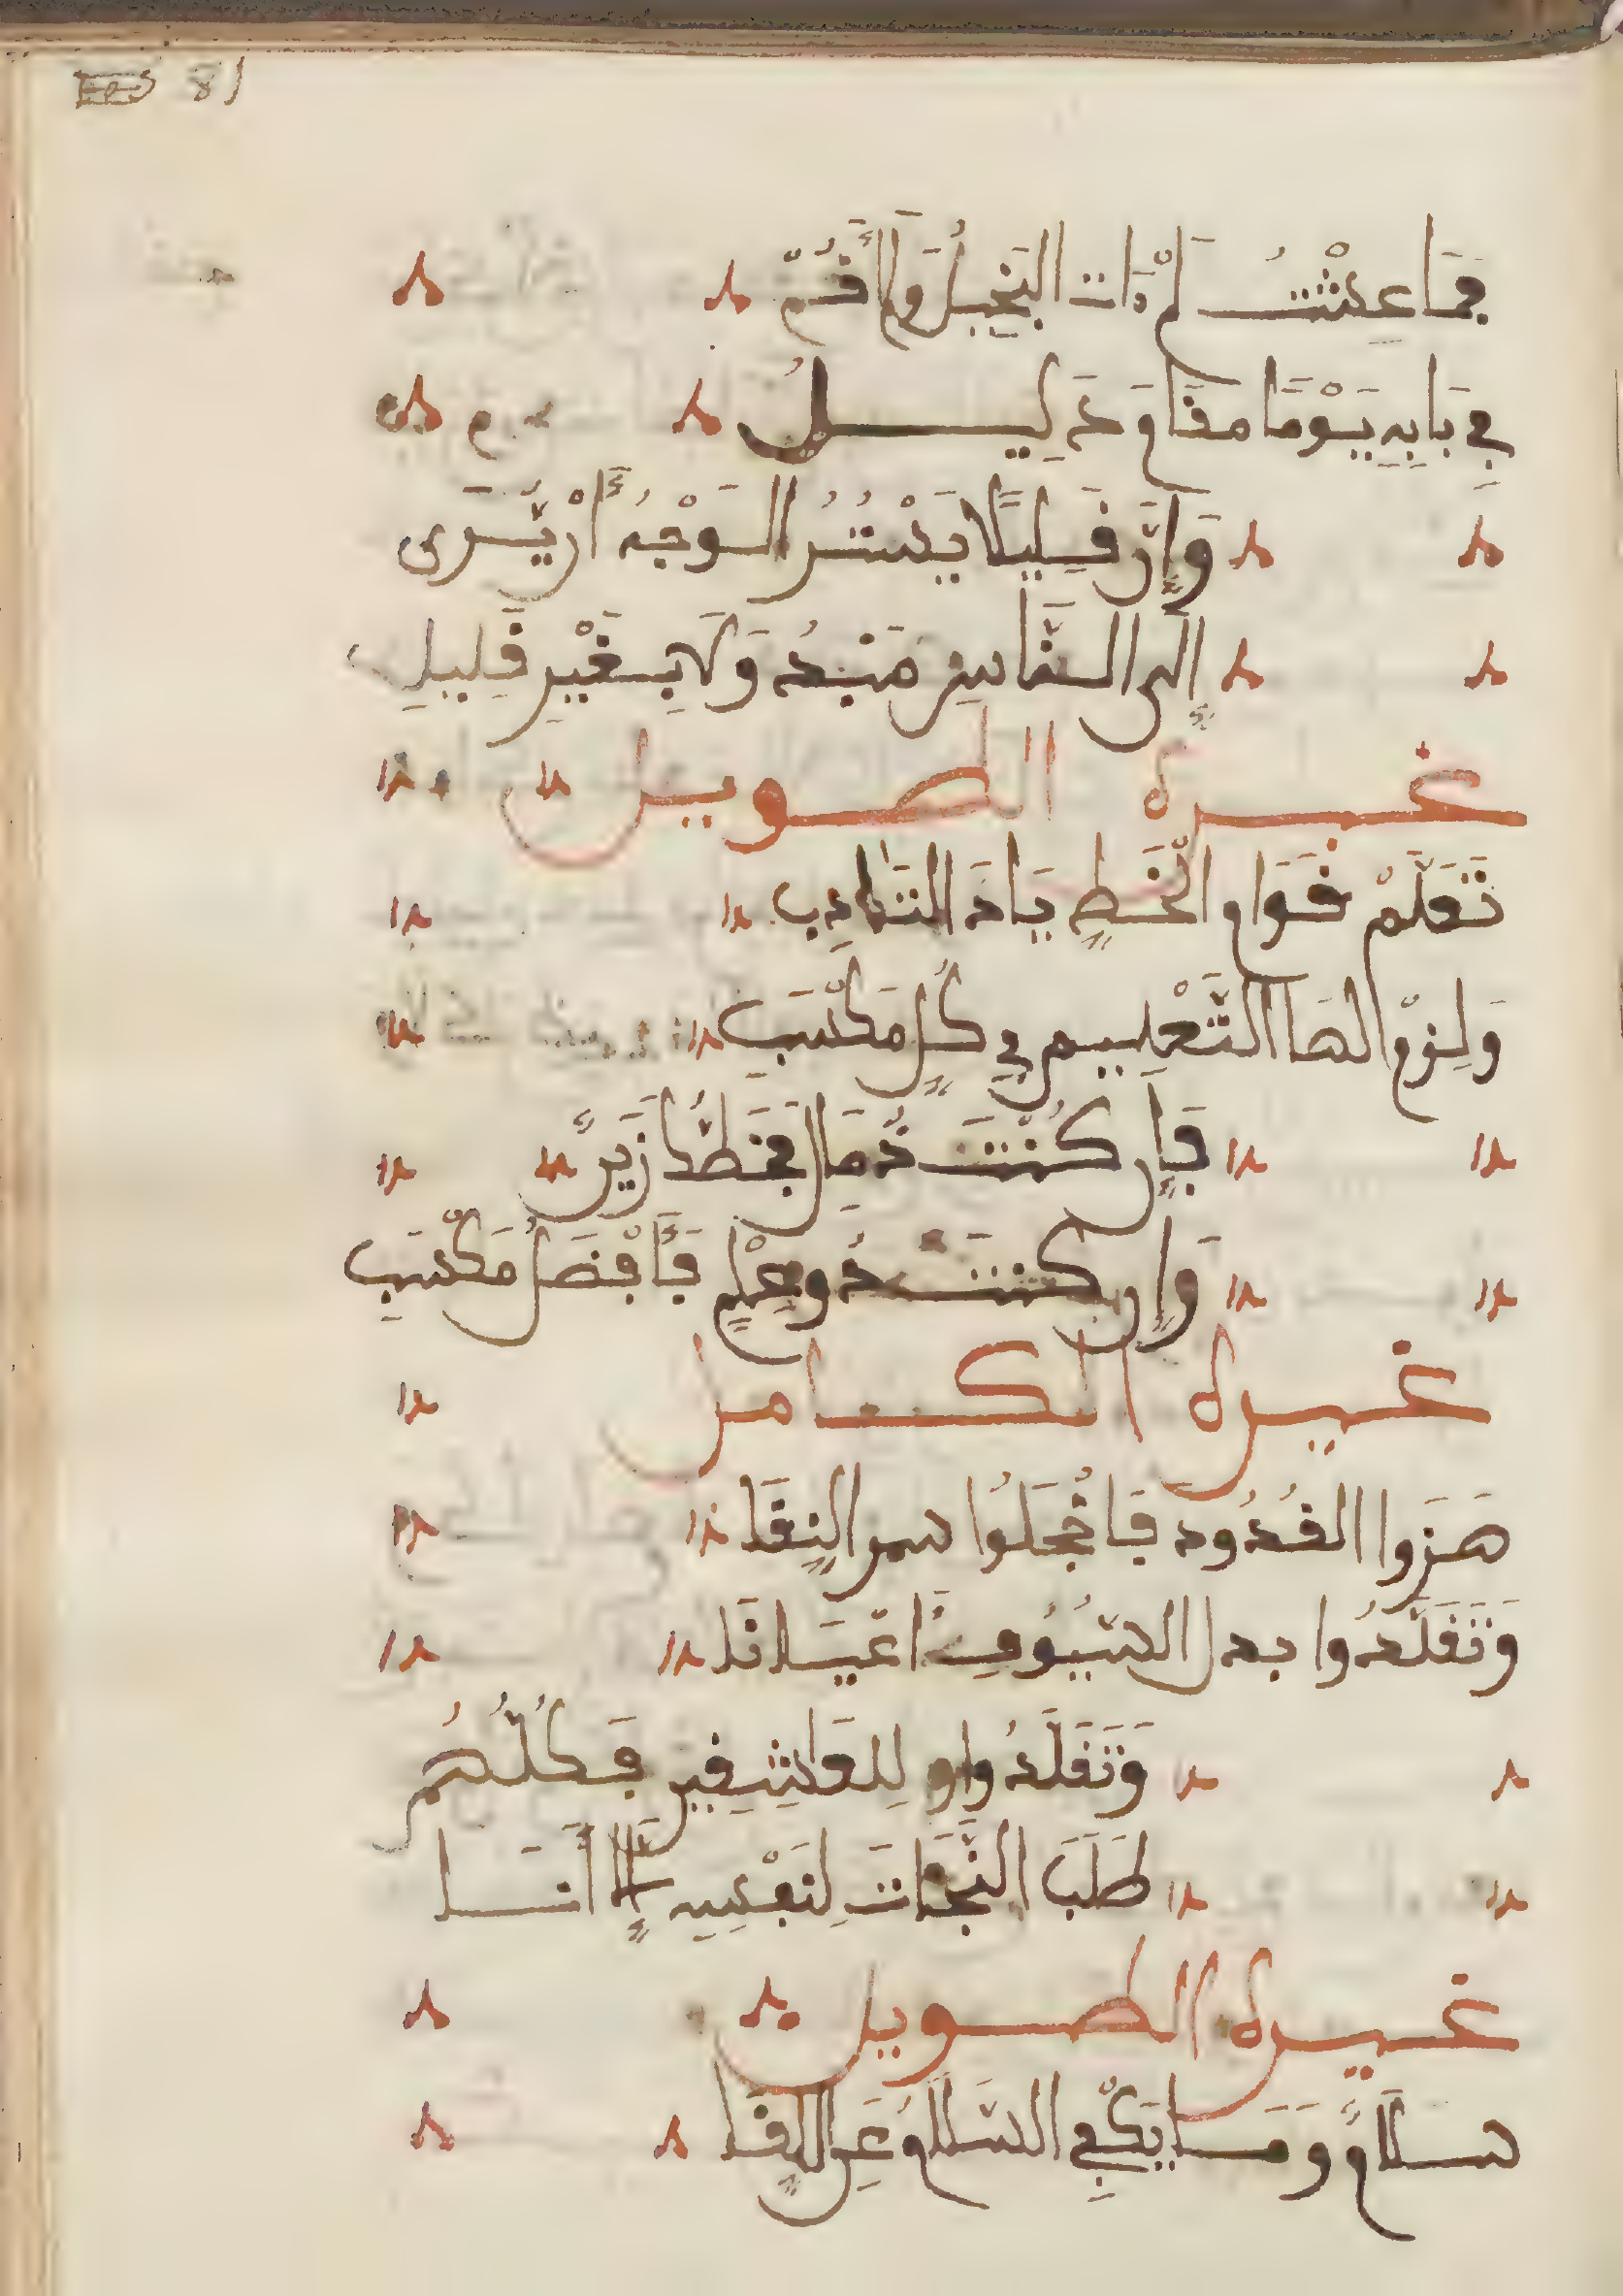 81
فما عشت لم ءات البخيل ولم أقم
في بابه يوما مقام ذليل
وإن قليلا يستر الوجه أن يرى
إلى الناس مبذولا بغير قليل
غيره الطويل
تعلم قوام الخط ياذا التأدب
ولزم لها التعليم في كل مكتب
فإن كنت ذمال فخطا زين
وإن كنت ذو علم فأفضل مكسب
غيره الكامل
هزوا القدود فاخجلوا سمر النقا
وتقلدوا بدل السيوف اعيانا
وتقلدوا للعاشقين فكلهم
طلب النجات لنفسه إلا أنا
غيره الطويل
سلام وما يكفي السلام عن اللقا